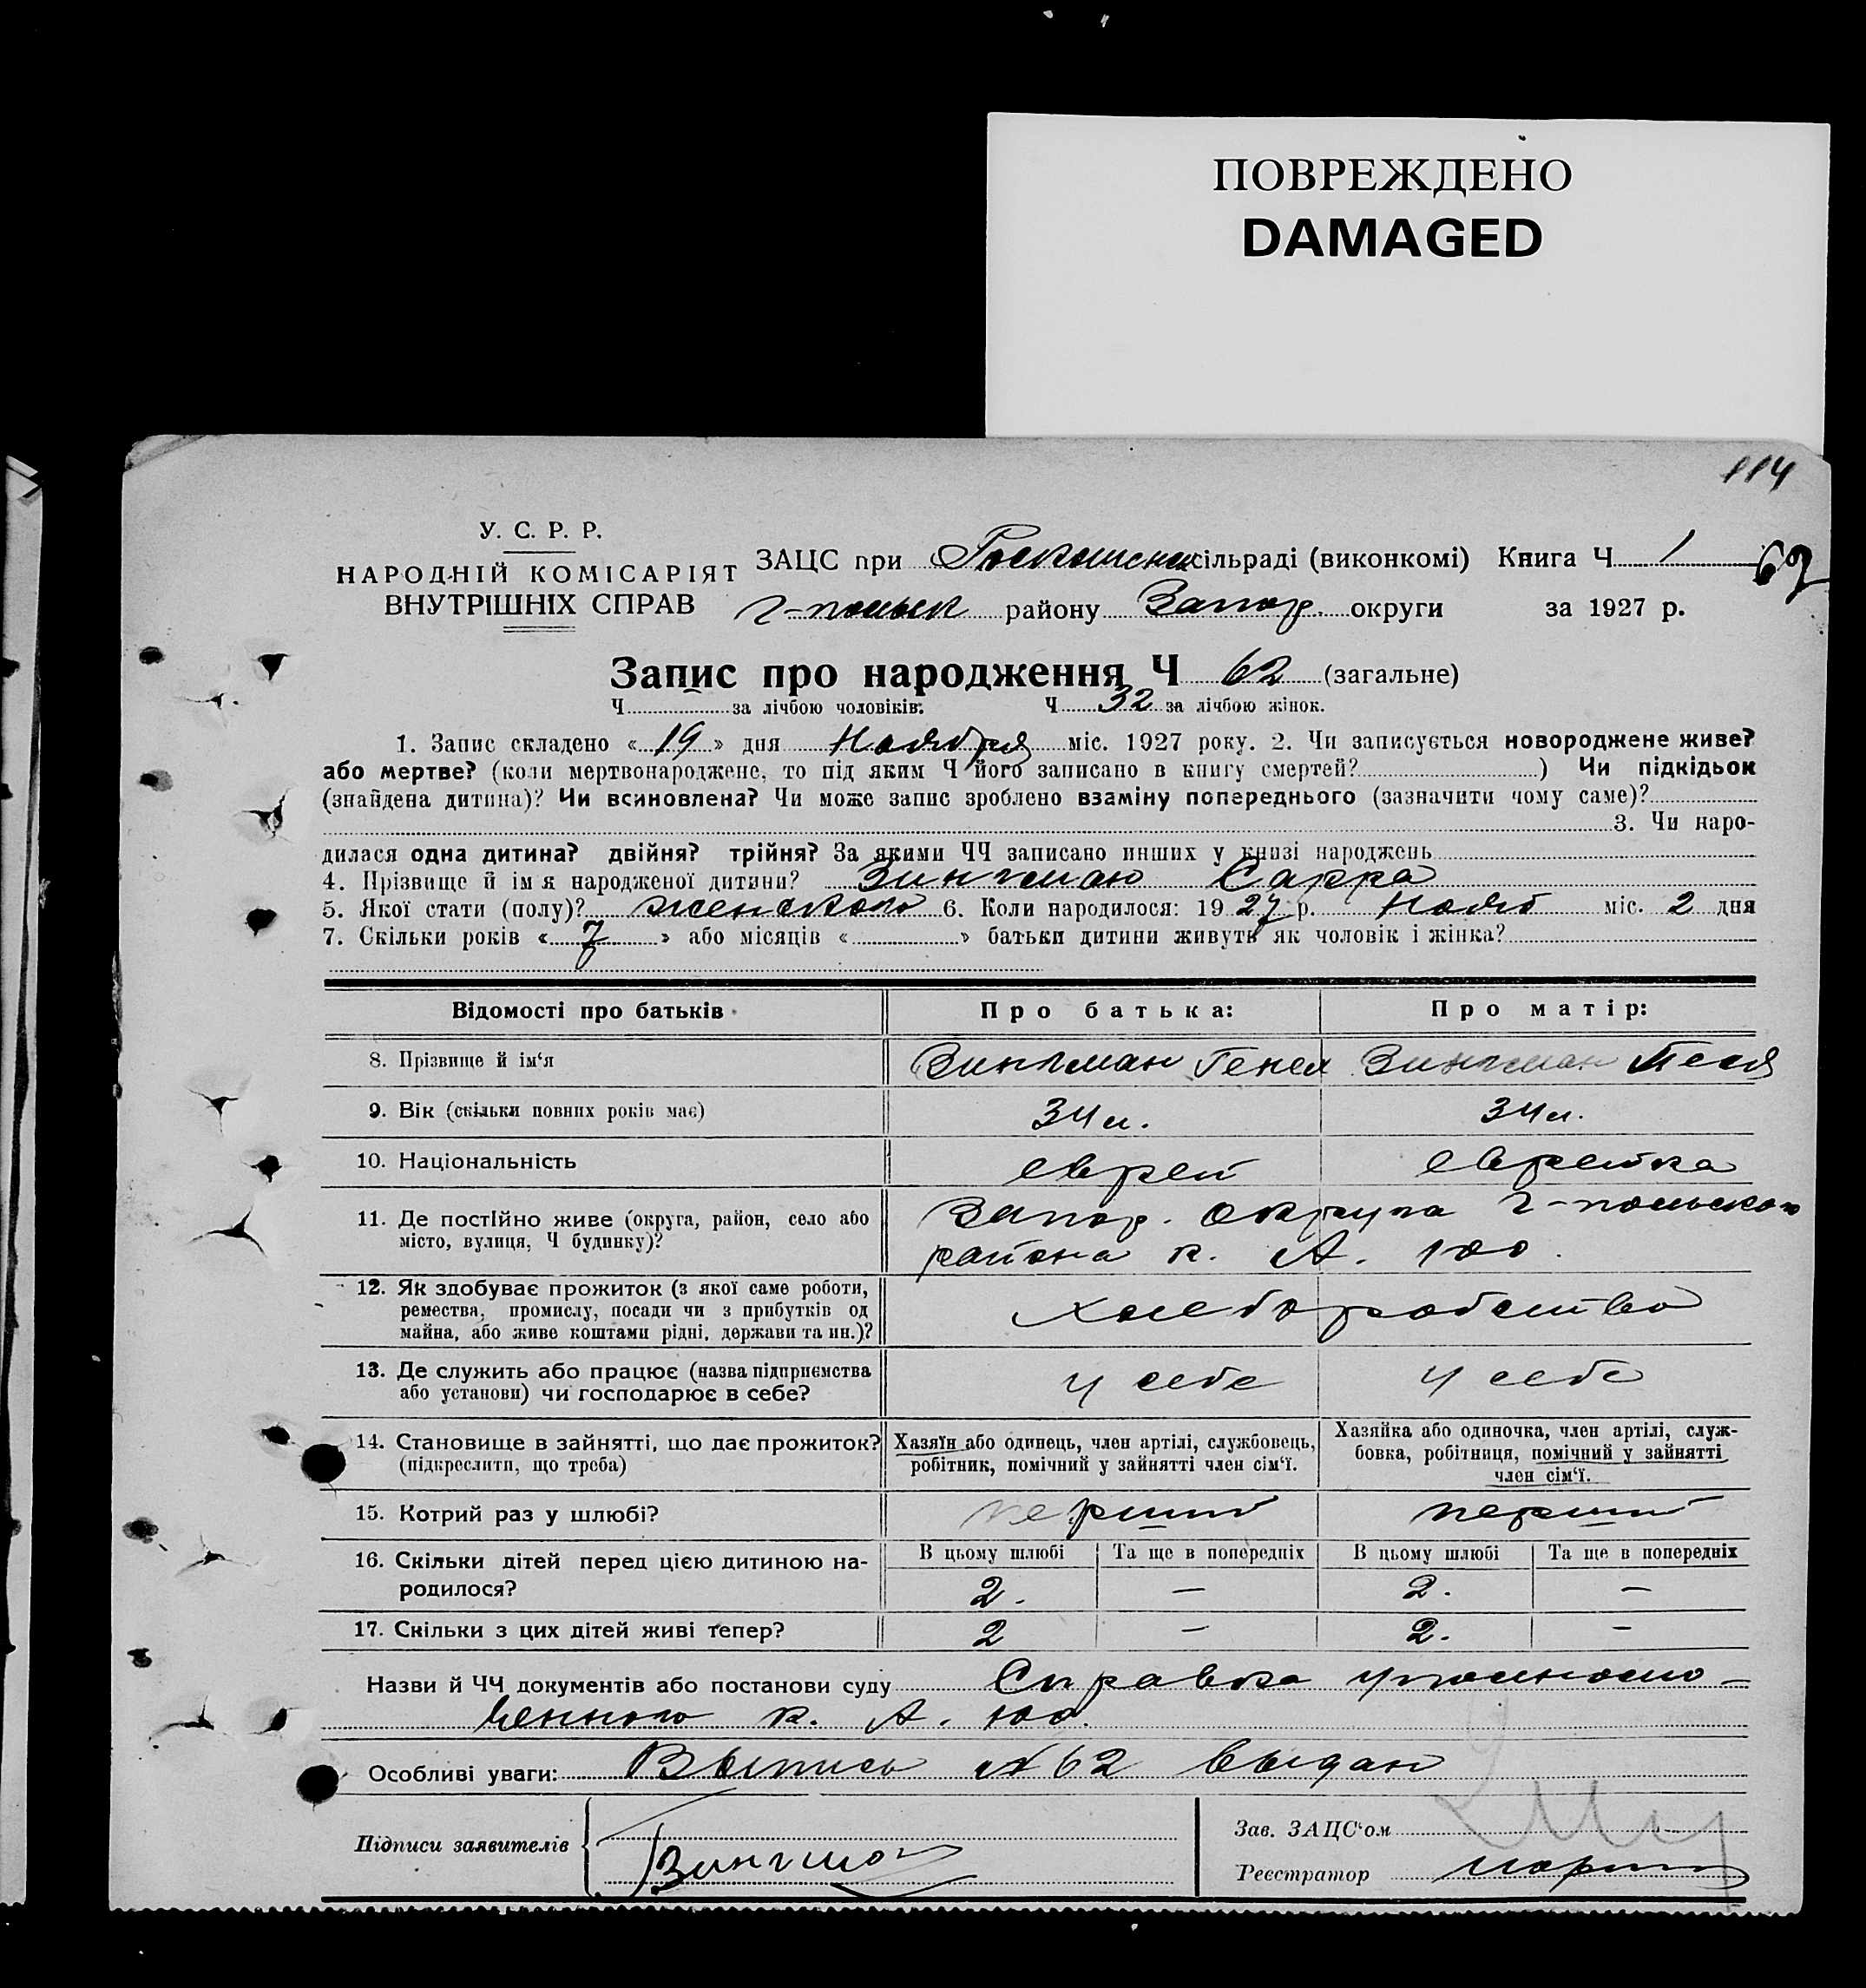 ПОВРЕЖДЕНО
DAMAGED
114
У. С. Р. Р.
НАРОДНІЙ КОМІСАРІЯТ
ВНУТРІШНІХ СПРАВ
ЗАЦС при сільраді (виконкомі) Книга Ч 1
62
району Запор. округи за 1927 р.
Запис про народження Ч 62 (загальне)
Ч за лічбою чоловіків: Ч 32 за лічбою жінок.
1. Запис складено « 19 » дня Ноября міс. 1927 року. 2. Чи записується новороджене живе?
або мертве? (коли мертвонароджене, то під яким Ч його записано в книгу смертей? ) Чи підкідьок
(знайдена дитина)? Чи всиновлена? Чи може запис зроблено взаміну попереднього (зазначити чому саме)?
3. Чи наро-
дилася одна дитина? двійня? трійня? За якими ЧЧ записано инших у книзі народжень
4. Прізвище й ім'я народженої дитини? Зингман Сарра
5. Якої стати (полу)? женского 6. Коли народилося: 1927 р. Нояб міс. 2 дня
7. Скільки років « 7 » або місяців « » батьки дитини живуть як чоловік і жінка?
Відомості про батьків Про батька: Про матір:
8. Прізвище й ім'я Зингман Генех Зингман Песя
9. Вік (скільки повних років має) 34 л. 34 л.
10. Національність еврей еврейка
11. Де постійно живе (округа, район, село або
місто, вулиця, Ч будинку)?
Запор. округа г-польского
района к. А. 100.
12. Як здобуває прожиток (з якої саме роботи,
ремества, промислу, посади чи з прибутків од
майна, або живе коштами рідні, держави та ин.)?
хлеборобство
13. Де служить або працює (назва підприємства
або установи) чи господарює в себе?
у себе у себе
14. Становище в зайнятті, що дає прожиток?
(підкреслити, що треба)
Хазяїн або одинець, член артілі, службовець,
робітник, помічний у зайнятті член сім'ї.
Хазяйка або одиночка, член артілі, служ-
бовка, робітниця, помічний у зайнятті
член сім'ї.
15. Котрий раз у шлюбі? перший перший
16. Скільки дітей перед цією дитиною на-
родилося?
В цьому шлюбі Та ще в попередніх В цьому шлюбі Та ще в попередніх
2. — 2. —
17. Скільки з цих дітей живі тепер? 2 — 2. —
Назви й ЧЧ документів або постанови суду Справка уполномо-
ченного к. А. 100.
Особливі уваги: Выпись № 62 выдан
Підписи заявителів
Зингман
Зав. ЗАЦС'ом
Реєстратор